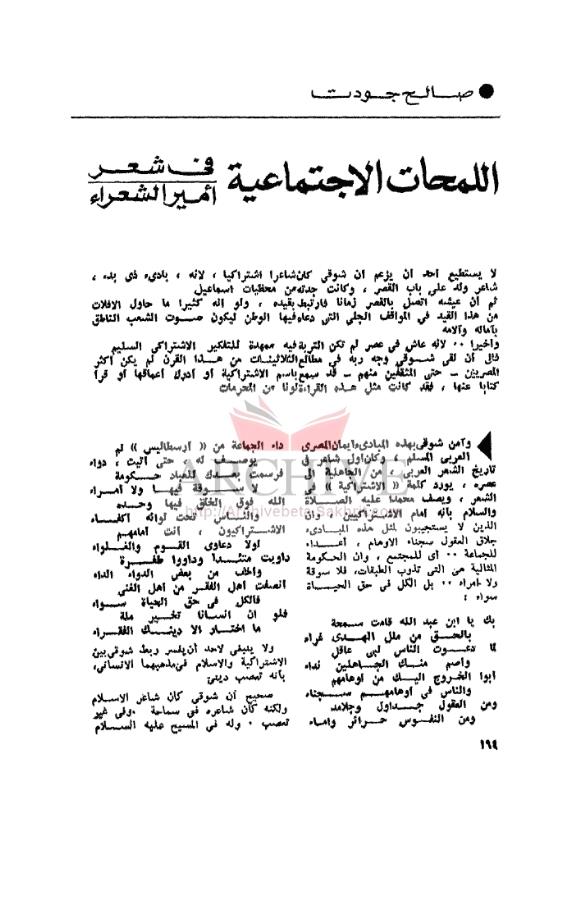 ● صالح جودت
اللمحات الاجتماعية فى شعر أمير الشعراء
لا يستطيع احد أن يزعم أن شوقى كان شاعرا اشتراكيا ، لانه ، بادىء ذى بدء ،
شاعر ولد على باب القصر ، وكانت جدته من محظيات اسماعيل
ثم أن عيشه اتصل بالقصر زمانا فارتبط بقيده ، ولو انه كثيرا ما حاول الافلات
من هذا القيد فى المواقف الجلى التى دعاه فيها الوطن ليكون صوت الشعب الناطق
بآماله وآلامه
وأخيرا ٠٠ لانه عاش فى عصر لم تكن التربة فيه ممهدة للتفكير الاشتراكى السليم
فال أن لقى شوقى وجه ربه فى مطالع الثلاثينات من هذا القرن لم يكن أكثر
المصريين – حتى المثقفين منهم – قد سمع باسم الاشتراكية أو أدرك أعماقها أو قرأ
كتابا عنها ، فقد كانت مثل هذه القراءة لونا من المحرمات
وآمن شوقى بهذه المبادىء ايمان المصرى
العربى المسلم ، وكان اول شاعر فى
تاريخ الشعر العربى ، من الجاهلية الى
عصره ، يورد كلمة « الاشتراكية » فى
الشعر ، ويصف محمدا عليه الصلاة
والسلام بأنه امام الاشتراكيين ، وأن
الذين لا يستجيبون لمثل هذه المبادىء
جلاق العقول سجناء الاوهام ، أعداء
للجماعة ٠٠ أى للمجتمع ، وان الحكومة
المثالية هى التى تذوب الطبقات، فلا سوقة
ولا أمراء ٠٠ بل الكل فى حق الحياة
سواء :
بك يا ابن عبد الله قامت سمحة
بالحق من ملل الهدى غراء
لما دعوت الناس لبى عاقل
وأصم منك الجاهلين نداء
أبوا الخروج اليك من أوهامهم
والناس فى أوهامهم سجناء
ومن العقول جداول وجلامد
ومن النفوس حرائر واماء
داء الجماعة من « أرسطاليس » لم
يوصف له ، حتى أتيت ، دواء
فرسمت بعدك للعباد حكومة
لا سوقة فيها ولا أمراء
الله فوق الخلق فيها وحده
والناس تحت لوائه أكفاء
الاشتراكيون ، أنت أمامهم
لولا دعاوى القوم والغلواء
داويت متئدا وداووا طفرة
وأخف من بعض الدواء الداء
أنصفت أهل الفقر من أهل الغنى
فالكل فى حق الحياة سواء
فلو ان انسانا تخير ملة
ما اختار الا دينك الفقراء
ولا ينبغى لاحد أن يفسر ربط شوقى بين
الاشتراكية والاسلام فى مذهبهما الانسانى،
بأنه تعصب دينى
صحيح أن شوقى كان شاعر الاسلام
ولكنه كان شاعره فى سماحة ٠ وفى غير
تعصب ٠ وله فى المسيح عليه السلام
ARCHIVE
http://Archivebeta.Sakhrit.com
١٩٤